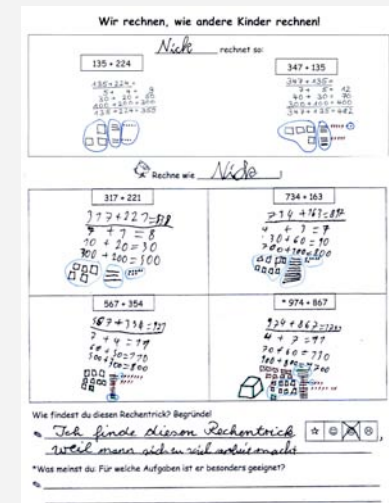 Wir rechnen, wie andere Kinder rechnen!
Nick rechnet so:
135 + 224
347 + 135
135+224=
5 + 4 = 9
30 + 20 = 50
100+200=300
135+224=359
347+135=
7 + 5 = 12
40 + 30 = 70
300+100=400
347+135=482
Rechne wie Nick!
317 + 221
734 + 163
317+221=538
7 + 1 = 8
10 + 20=30
300 +200=500
734 +163=897
4 + 3 = 7
30+60=90
700+100=800
567 + 354
* 974 + 867
7 + 4 = 11
974+867=
7 + 4 = 11
Wie findest du diesen Rechentrick? Begründe!
Ich finde diesen Rechentrick ,
weil mann sich zu viel arbeit macht
*Was meinst du: Für welche Aufgaben ist er besonders geeignet?